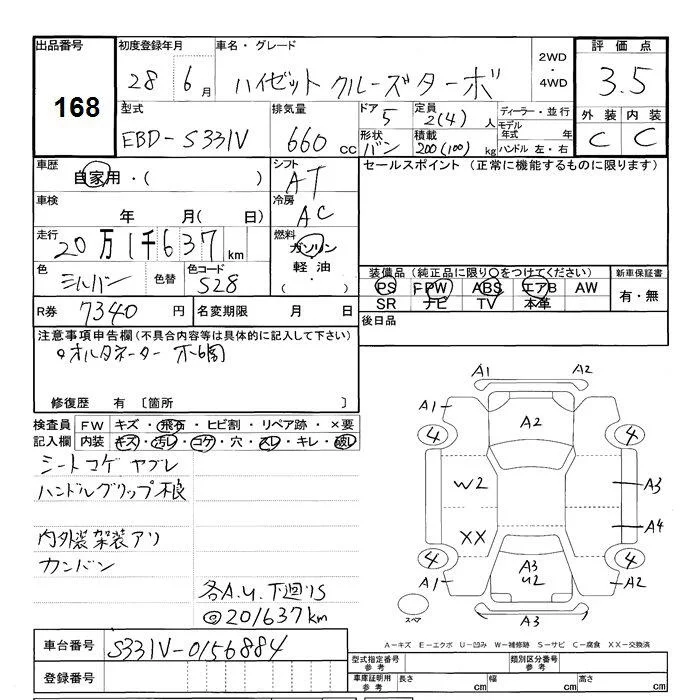 出品番号 初度登録年月 車名・グレード 2WD・4WD 評価点
168 28年6月 ハイゼット クルーズターボ 3.5
型式 排気量 ドア 定員 ディーラー・並行 外装 内装
EBD-S331V 660cc 5 2(4)人 モデル年式 年 C C
形状 バン 積載 200(100)kg ハンドル 左・右
車歴 自家用・( ) シフト AT セールスポイント(正常に機能するものに限ります)
車検 年 月( 日) 冷房 AC
走行 20万1千637km 燃料 ガソリン 軽油・( )
色 シルバー 色替 色コード S28
装備品(純正品に限り○をつけてください) 新車保証書
PS FPW ABS エアB AW 有・無
SR ナビ TV 本革
R券 7340円 名変期限 月 日 後日品
注意事項申告欄(不具合内容等は具体的に記入して下さい)
オルタネーター
修復歴 有〔箇所 〕
検査員記入欄 FW キズ・飛石・ヒビ割・リペア跡・×要
内装 キズ・汚レ・コゲ・穴・スレ・キレ・破レ
シートコゲ ヤブレ
ハンドルグリップ不良
内外装架装アリ
カンバン
各A.U.下廻りS
@201637km
A1 A2
A1 A2
4 4
W2 A3
XX A4
4 4
A3
U2
A1 A2
スペア A3
A-キズ E-エクボ U-凹み W-補修跡 S-サビ C-腐食 XX-交換済
車台番号 S331V-0156884
登録番号
型式指定番号 参考 類別区分番号 参考
車庫証明用 参考 長さ cm 幅 cm 高さ cm